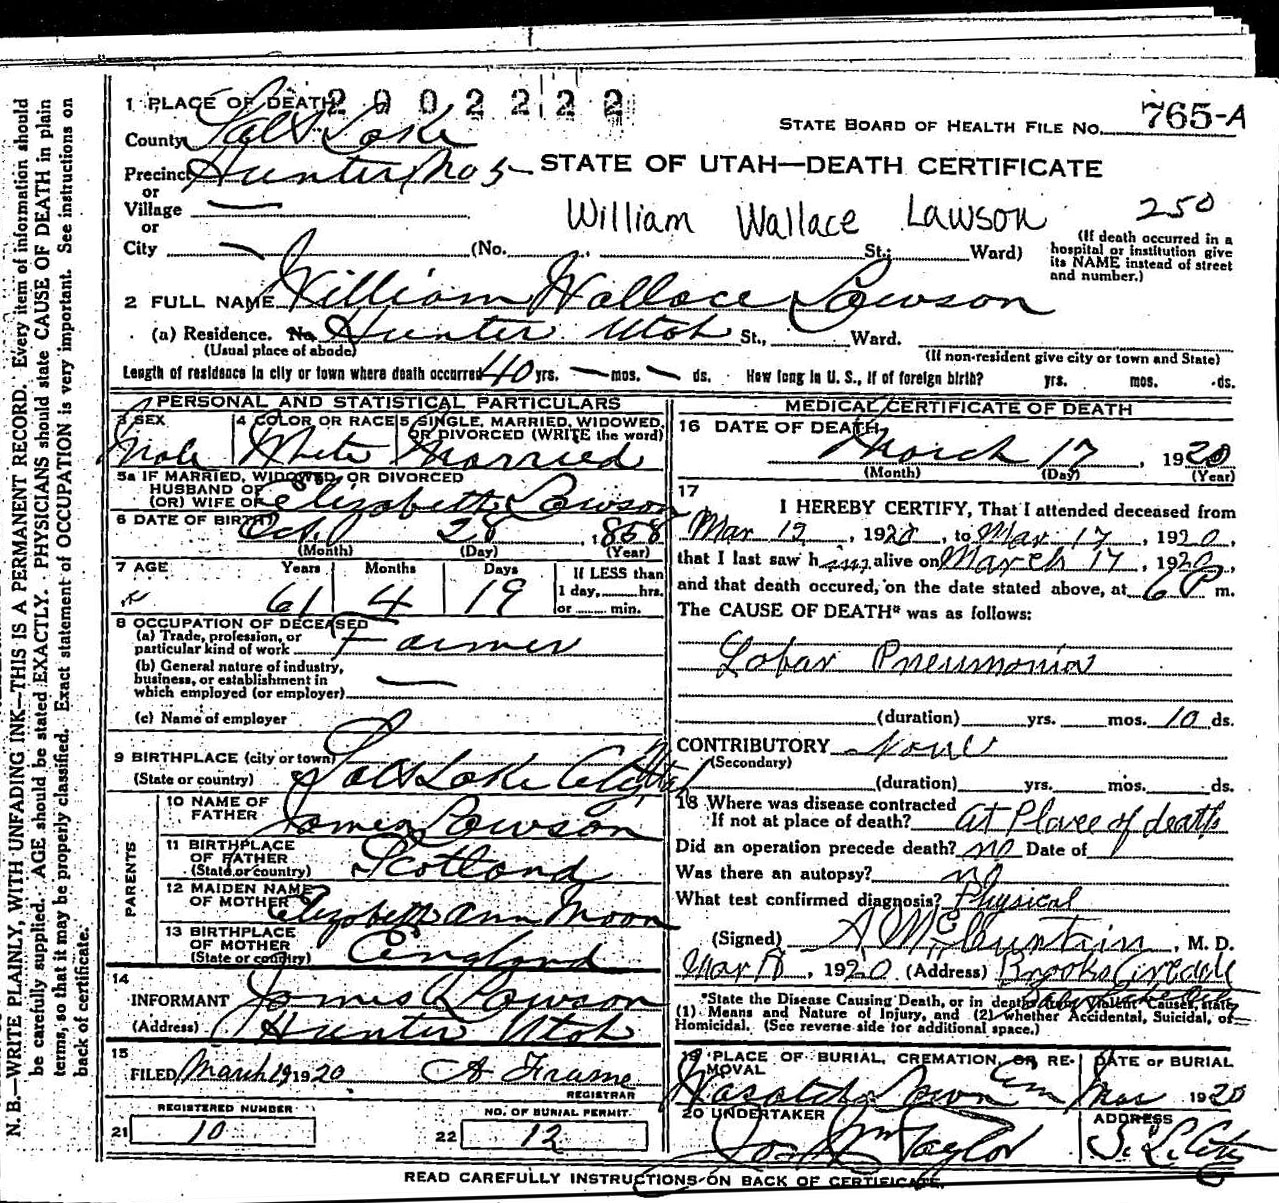 1 PLACE OF DEATH 2902222
STATE BOARD OF HEALTH FILE NO. 765-A
County Salt Lake
Precinct Hunter, No 5
STATE OF UTAH—DEATH CERTIFICATE
or
Village
or
William Wallace Lawson 250
City (No. St.; Ward) (If death occurred in a hospital or institution give its NAME instead of street and number.)
2 FULL NAME William Wallace Lawson
(a) Residence. No. Hunter Utah St., Ward.
(Usual place of abode) (If non-resident give city or town and State)
Length of residence in city or town where death occurred 40 yrs. mos. ds. How long in U. S., if of foreign birth? yrs. mos. ds.
PERSONAL AND STATISTICAL PARTICULARS
3 SEX Male
4 COLOR OR RACE White
5 SINGLE, MARRIED, WIDOWED, OR DIVORCED (WRITE the word) Married
5a IF MARRIED, WIDOWED, OR DIVORCED
HUSBAND OF
(OR) WIFE OF Elizabeth Lawson
6 DATE OF BIRTH Oct. 28, 1858
(Month) (Day) (Year)
7 AGE Years Months Days If LESS than
1 day, hrs.
61 4 19 or min.
8 OCCUPATION OF DECEASED
(a) Trade, profession, or
particular kind of work Farmer
(b) General nature of industry,
business, or establishment in
which employed (or employer)
(c) Name of employer
9 BIRTHPLACE (city or town)
(State or country) Salt Lake City, Utah
PARENTS
10 NAME OF
FATHER James Lawson
11 BIRTHPLACE
OF FATHER
(State or country) Scotland
12 MAIDEN NAME
OF MOTHER Elizabeth Ann Moon
13 BIRTHPLACE
OF MOTHER
(State or country) England
14
INFORMANT James Lawson
(Address) Hunter Utah
15
FILED March 19 1920 A Frame
REGISTRAR
REGISTERED NUMBER NO. OF BURIAL PERMIT
21 10 22 12
MEDICAL CERTIFICATE OF DEATH
16 DATE OF DEATH
March 17, 1920
(Month) (Day) (Year)
17
I HEREBY CERTIFY, That I attended deceased from
Mar 12, 1920, to Mar 17, 1920,
that I last saw him alive on March 17, 1920,
and that death occured, on the date stated above, at 6 P m.
The CAUSE OF DEATH* was as follows:
Lobar Pneumonia
(duration) yrs. mos. 10 ds.
CONTRIBUTORY None
(Secondary)
(duration) yrs. mos. ds.
18 Where was disease contracted
If not at place of death? at Place of death
Did an operation precede death? no Date of
Was there an autopsy? no
What test confirmed diagnosis? Physical
(Signed) , M. D.
Mar 18, 1920 (Address) Brooks Arcade
*State the Disease Causing Death, or in deaths from Violent Causes, state
(1) Means and Nature of Injury, and (2) whether Accidental, Suicidal, or
Homicidal. (See reverse side for additional space.)
19 PLACE OF BURIAL, CREMATION, OR RE- DATE OF BURIAL
MOVAL
Wasatch Lawn Cem Mar 1920
20 UNDERTAKER ADDRESS
Jos Wm Taylor S. L. City
READ CAREFULLY INSTRUCTIONS ON BACK OF CERTIFICATE.
N. B.—WRITE PLAINLY, WITH UNFADING INK—THIS IS A PERMANENT RECORD. Every item of information should
be carefully supplied. AGE should be stated EXACTLY. PHYSICIANS should state CAUSE OF DEATH in plain
terms, so that it may be properly classified. Exact statement of OCCUPATION is very important. See instructions on
back of certificate.